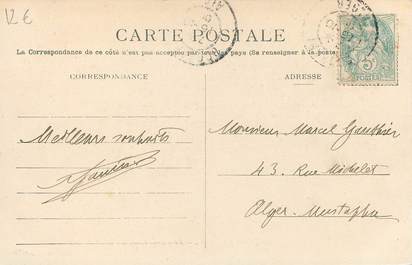 12 €
CARTE POSTALE
La Correspondance de ce côté n'est pas acceptée par tous les pays (Se renseigner à la poste)
CORRESPONDANCE
ADRESSE
Meilleurs souhaits
Monsieur Marcel Gauthier
43, Rue Michelet
Alger-Mustapha
ALGER
5
POSTES